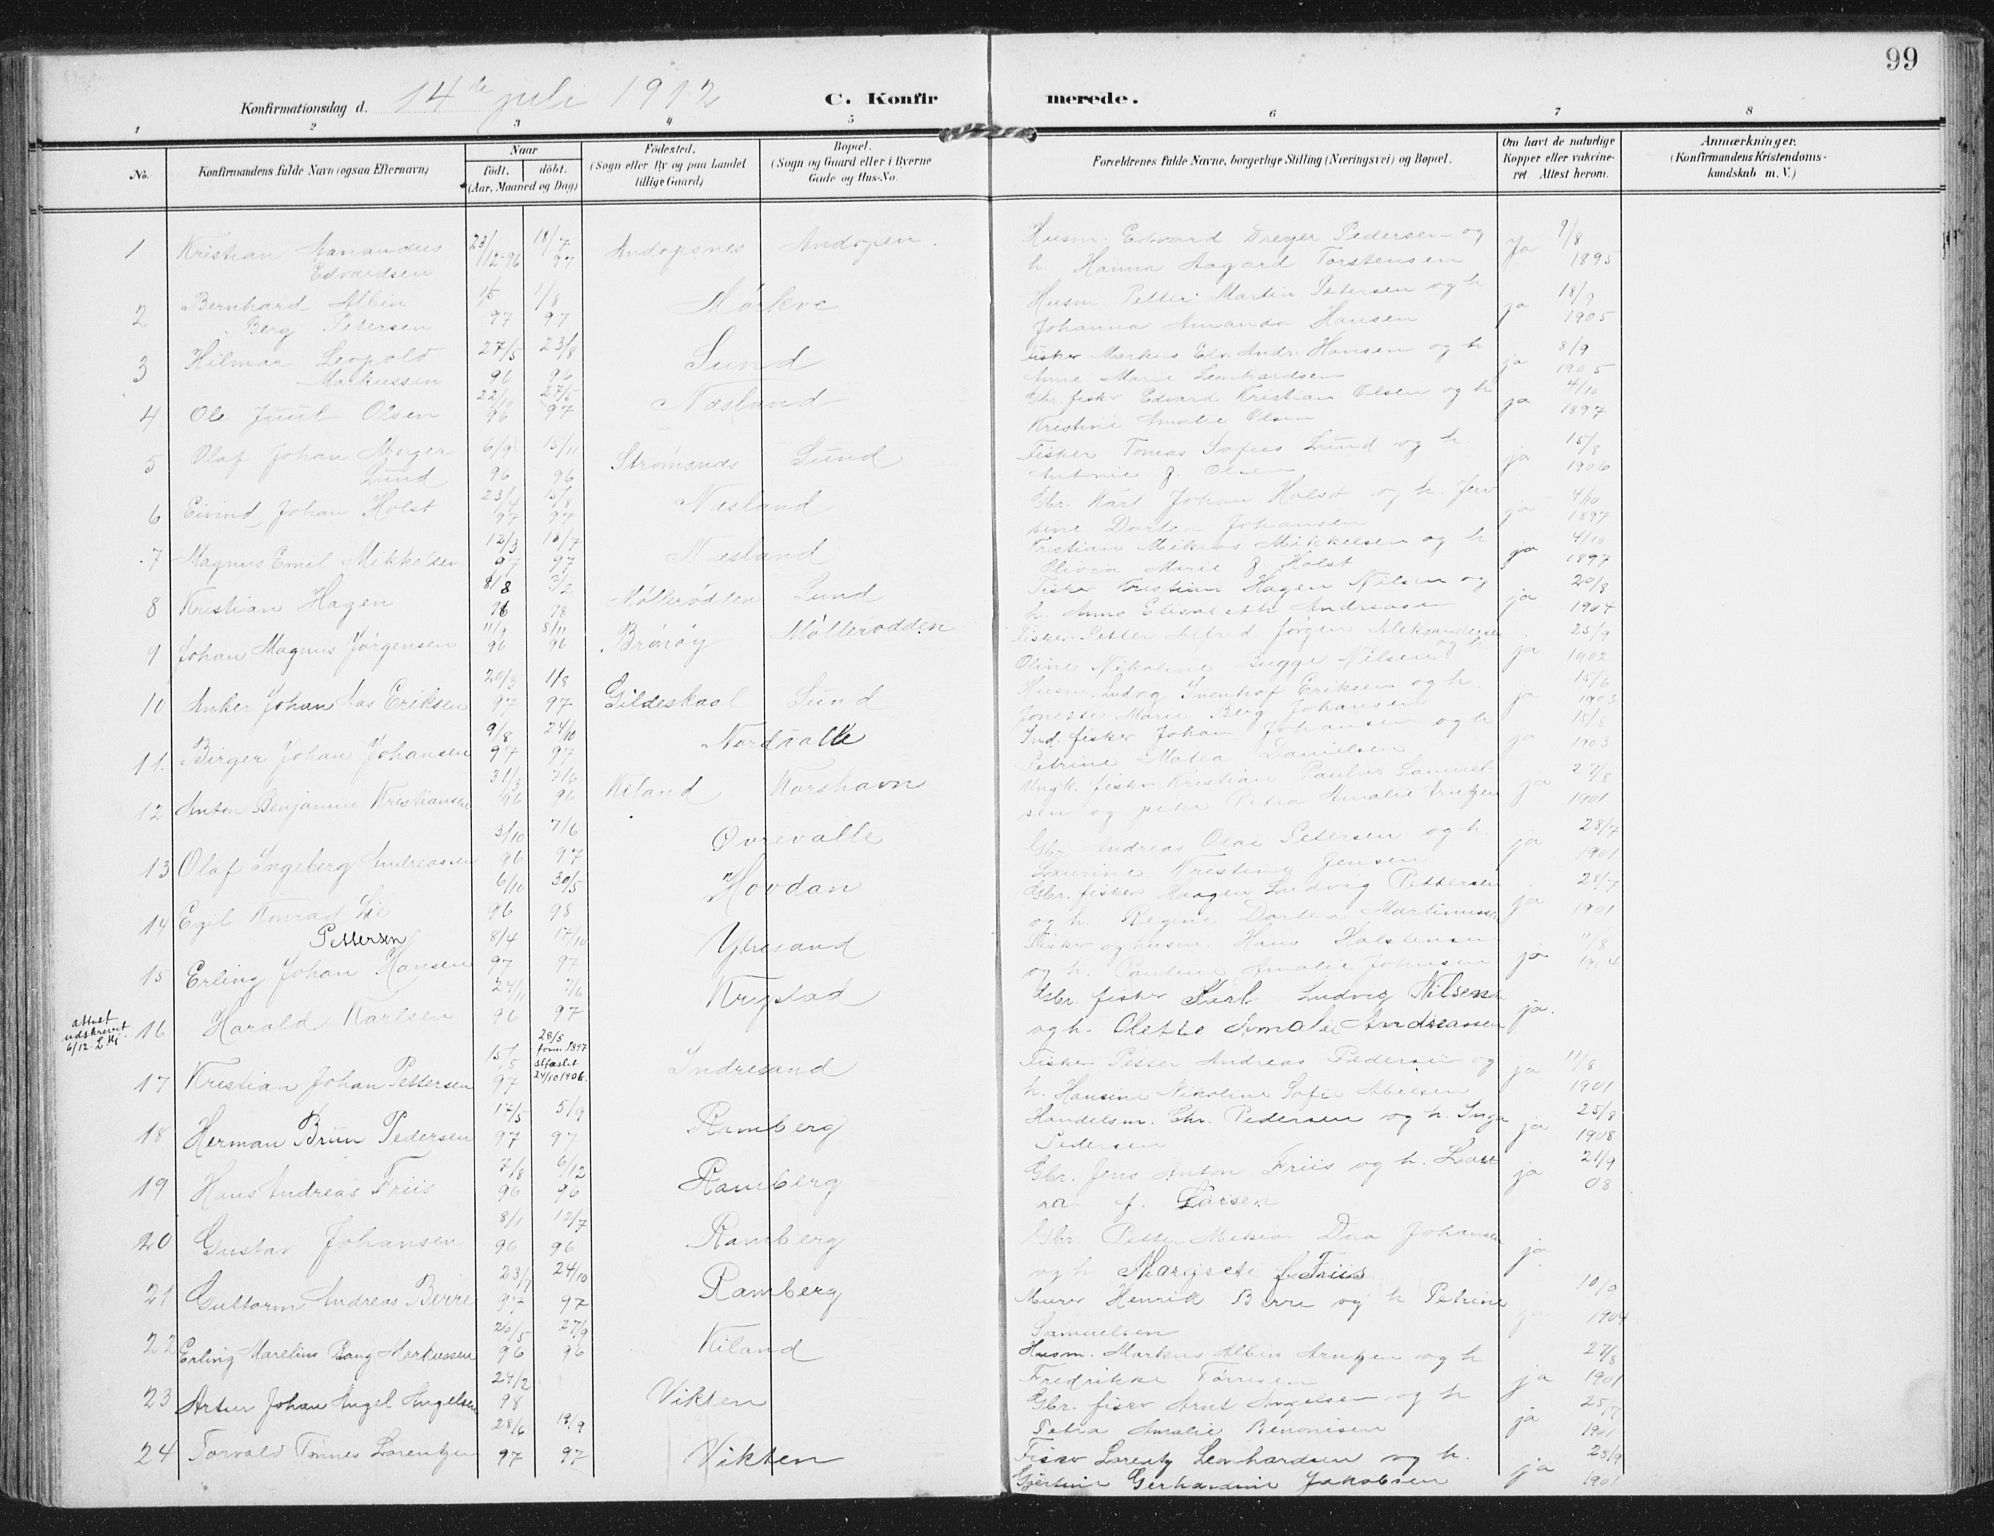 99
Konfirmationsdag d. 14de juli 1912 C. Konfirmerede.
1 2 3 4 5 6 7 8
No. Konfirmandens fulde Navn (ogsaa Efternavn) Naar født. døbt. (Aar, Maaned og Dag) Fødested. (Sogn eller By og paa Landet tillige Gaard) Bopæl. (Sogn og Gaard eller i Byerne Gade og Hus-No. Forældrenes fulde Navne, borgerlige Stilling (Næringsvei) og Bopæl. Om havt de naturlige Kopper eller vakcineret Attest herom. Anmærkninger. (Konfirmandens Kristendomskundskab m. V.)
1 Kristian Amandus Edvardsen 23/12-96 18/7 97 Andopsnes Andopen. Husm. Edvard Dreyer Pedersen og
h. Hanna Aagard Torstensen Ja 9/8 1895
2 Bernhard Albin Berg Petersen 97 1/8 97 Mørkve Husm. Petter Martin Petersen og h
Johanna Amanda Hansen ja 18/9 1905
3 Hilmar Leopold Markussen 27/5 96 23/8 96 Sund Fisker Markus Edv. Andr. Hansen og h
Anne Marie Leonhardsen ja 8/9 1905
4 Ole Juul Olsen 96 27/5 97 Næsland Gbr. fisker Edvard Kristian Olsen og h
Kristine Amalie Olsen ja 4/10 1897
5 Olaf Johan Lund 6/9 96 15/11 96 Strømsnes Sund Fisker Tomas Sofus Lund og h.
Antonie J. Olsen ja 15/8 1906
6 Eivind Johan Holst 23/4 97 15/8 97 Næsland Gbr. Karl Johan Holst og h. Jensine
Dortea Johansen ja 4/10 1897
7 Magnus Emil Mikkelsen 12/3 97 97 Næsland Kristian Mikkelsen og h
Olivia Marie J Holst ja 4/10 1897
8 Kristian Hagen 8/8 96 2/2 98 Møllerodden Sund Fisker Kristian Hagen Nilsen og
h. Anna Elisabeth Andreasen ja 20/8 1904
9 Johan Magnus Jørgensen 11/9 96 8/11 96 Brønøy Møllerodden Fisker Petter Alfred Jørgen Aleksandersen og h.
Oline Nikoline Bugge Nilsen ja 25/9 1902
10 Anker Johan Aas Eriksen 20/3 97 1/8 97 Gildeskaal Sund Husm. Ludvig Eriksen og h.
Jonette Marie Berg Johansen ja 15/6 1903
11. Birger Johan Johansen 9/8 97 24/10 97 Nordvalle Ind. fisker Johan Johansen og h
Petrine Matea Danielsen ja 15/8 1903
12 Anton Benjamin Kristiansen 31/3 96 7/6 96 Kiland Korshavn Ungk. fisker Kristian Paulus Samuelsen
og pike Petra Amalie ja 27/8 1901
13 Olaf Ingeberg Andreassen 3/10 96 7/6 97 Øvrevalle Gbr Andreas Olai Petersen og h.
Laurine Kristine Jensen ja 28/7 1901
14 Egil Konrad Lie Pettersen 6/10 96 30/5 98 Hovdan Gbr. fisker Haagen Ludvig Pettersen
og h. Regine Dortea Martinussen ja 28/7 1901
15 Erling Johan Hansen 8/4 97 17/10 97 Ytresand Fisker og husm. Hans Holstensen
og h. Pauline Amalie Johnsen ja 11/8 1904
attest udskrevet 6/12-
16 Harald Karlsen 24/11 96 7/6 97 Krystad Gbr. fisker Karl Ludvig Nilsen
og h. Olette Amalie Andreassen ja.
17 Kristian Johan Pettersen 15/5 97 28/5 1897 stfæstet 24/10 1906. Indresand Fisker Petter Andreas Pedersen og
h. Hansine Nikoline Sofie Abelsen ja 11/8 1901
18 Herman Brun Pedersen 17/5 97 5/9 97 Ramberg Handelsm. Chr. Pedersen og h. Inga
Pedersen ja 25/8 1908
19 Hans Andreas Friis 7/8 96 6/12 96 Ramberg Gbr. Jens Anton Friis og h. Laura
f. Larsen ja 21/9 08
20 Gustav Johansen 8/1 96 12/7 96 Ramberg Gbr Petter Mikias Daa Johansen
og h Margrete f. Friis ja.
21 Guttorm Andreas Berre 23/7 97 24/10 97 Ramberg Murer Henrik Berre og h Petrine
Samuelsen ja 10/9 1904
22 Erling Marelius Bang Markussen 26/5 96 27/9 96 Kiland Husm. Markus Albin Arntzen og h
Fredrikke Tørresen ja 27/8 1901
23 Artur Johan Angel Angelsen 24/2 98 Vikten Gbr. fisker Arnt Angelsen og h
Petra Amalie Benonisen ja 25/7 1901
24 Torvald Tønnes Lorentzen 28/6 97 19/9 97 Vikten Fisker Lorentz Leonhardsen og h.
Gjertine Gerhardine Jakobsen ja 25/9 1901